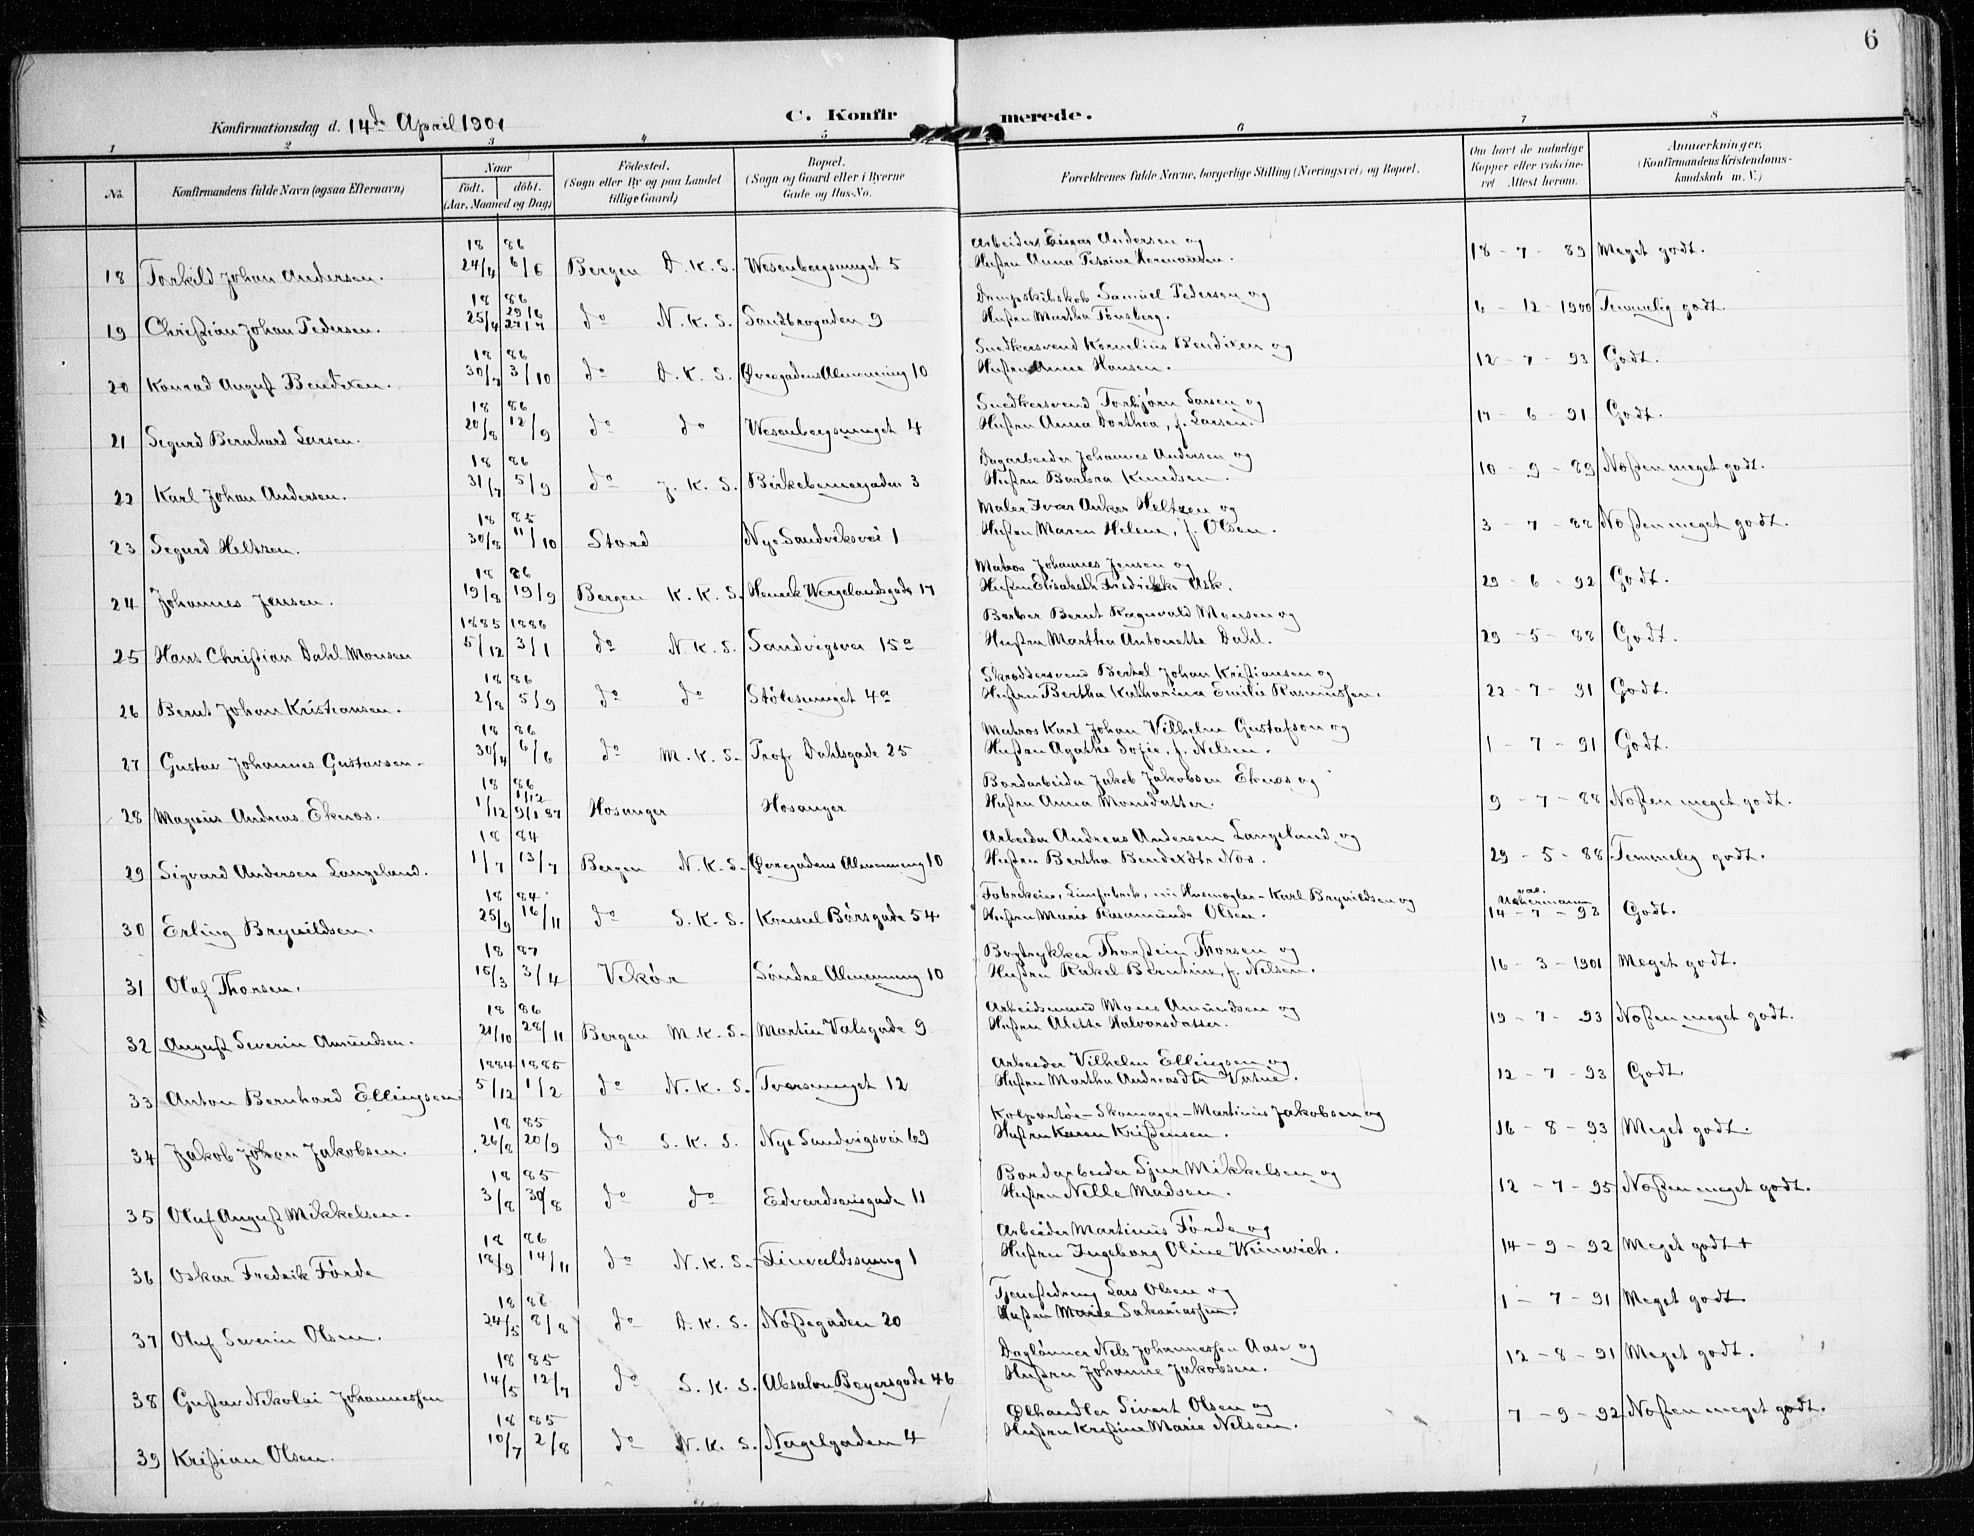 6
Konfirmationsdag d. 14de April 1901
C. Konfirmerede.
1 2 3 4 5 6 7 8
No.
Konfirmandens fulde Navn (ogsaa Efternavn)
Naar
født. døbt.
(Aar, Maaned og Dag)
Fødested.
(Sogn eller By og paa Landet
tillige Gaard)
Bopæl.
(Sogn og Gaard eller i Byerne
Gade og Hus-No.
Forældrenes fulde Navne, borgerlige Stilling (Næringsvei) og Bopæl.
Om havt de naturlige
Kopper eller vaccine-
ret Attest herom.
Anmerkninger.
(Konfirmandens Kristendoms-
kundskab m. V.)
18 86
Arbeider Einar Andersen og
18 Torkild Johan Andersen. 24/4 6/6 Bergen D. K. S. Wesenbergsmuget 5 Hustru Anna Petrine Hermansen. 18 - 7 - 89 Meget godt.
18 86
Dampskibskok Samuel Pedersen og
19 Christian Johan Pedersen. 25/4 29/6 27/7 do N. K. S. Sandbrogaden 9 Hustru Martha Tønsberg. 6 - 12 - 1900 Temmelig godt.
18 86
Snedkersvend Kornelius Bendixen og
20 Konrad August Bendixen. 30/7 3/10 do D. K. S. Øvregadens Almenning 10 Hustru Anne Hansen. 12 - 7 - 93 Godt.
18 86
Snedkersvend Torbjørn Larsen og
21 Sigurd Bernhard Larsen. 20/8 12/9 do do Wesenbergsmuget 4 Hustru Anna Dorthea, f. Larsen. 17 - 6 - 91 Godt.
18 86
Dagarbeider Johannes Andersen og
22 Karl Johan Andersen. 31/7 5/9 do J. K. S. Birkebeinergaden 3 Hustru Barbra Knudsen. 10 - 9 - 89 Næsten meget godt.
18 85
Maler Ivar Anker Heltzen og
23 Sigurd Heltzen. 30/8 11/10 Stord Nye Sandviksvei 1 Hustru Maren Helene, f. Olsen. 3 - 7 - 88 Næsten meget godt.
18 86
Matros Johannes Jensen og
24 Johannes Jensen. 19/8 19/9 Bergen K. K. S. Henrik Wergelandsgade 17 Hustru Elisabeth Fredrikke Ask. 29 - 6 - 92 Godt.
1885 1886
Barber Bernt Ragnvald Monsen og
25 Hans Christian Dahl Monsen 5/12 3/1 do N. K. S. Sandvigsvei 15a Hustru Martha Antonette Dahl. 29 - 5 - 88 Godt.
18 86
Skræddersvend Bertel Johan Kristiansen og
26 Bernt Johan Kristiansen. 2/8 5/9 do do Stølesmuget 4a Hustru Bertha Katharina Emilie Rasmussen. 22 - 7 - 91 Godt.
18 86
Matros Karl Johan Vilhelm Gustafson og
27 Gustav Johannes Gustavsen. 30/4 6/6 do M. K. S. Prof. Dahlsgade 25 Hustru Agathe Sofie, f. Nelsen. 1 - 7 - 91 Godt.
18 86
Bordarbeider Jakob Jakobsen Eknæs og
28 Magnus Andreas Eknæs. 1/12 1/12 9/1 87 Hosanger Hosanger Hustru Anna Monsdatter. 9 - 7 - 88 Næsten meget godt.
18 84
Arbeider Andreas Andersen Langeland og
29 Sigvard Andersen Langeland. 1/7 13/7 Bergen N. K. S. Øvregadens Almenning 10 Hustru Bertha Bendixdtr Næs. 29 - 5 - 88 Temmelig godt.
18 84
30 Erling Brynildsen. 25/9 16/11 do S. K. S. Konsul Børsgade 54 Hustru Marie Rosamunde Olsen. 14 - 7 - 93 Godt.
18 87
Bogtrykker Thorstein Thorsen og
31 Olaf Thorsen. 15/3 3/4 Vikør Søndre Almenning 10 Hustru Rakel Berntine, f. Nelsen. 16 - 3 - 1901 Meget godt.
18 86
Arbeidsmand Mons Amundsen og
32 August Severin Amundsen. 21/10 28/11 Bergen M. K. S. Martin Valsgade 9 Hustru Alette Halvorsdatter. 19 - 7 - 93 Næsten meget godt.
1884 1885
Arbeider Vilhelm Ellingsen og
33 Anton Bernhard Ellingsen 5/12 1/2 do N. K. S. Tversmuget 12 Hustru Martha Andreasdtr Vatne. 12 - 7 - 93 Godt
18 85
Kolportør - Skomager - Martinus Jakobsen og
34 Jakob Johan Jakobsen. 26/8 20/9 do S. K. S. Nye Sandvigsvei 69 Hustru Karen Kristensen. 16 - 8 - 93 Meget godt.
18 85
Bordarbeider Sjur Mikkelsen og
35 Olaf August Mikkelsen. 3/8 30/8 do do Edvardsensgade 11 Hustru Nelle Madsen. 12 - 7 - 95 Næsten meget godt.
18 86
Arbeider Martinus Førde og
36 Oskar Fredrik Førde 18/9 14/11 do N. K. S. Hustru Ingeborg Oline Weinwich. 14 - 9 - 92 Meget godt +
18 86
Tjenestedreng Lars Olsen og
37 Oluf Severin Olsen. 24/5 8/8 do D. K. S. Nøstegaden 20 Hustru Marie Sakariassen. 1 - 7 - 91 Meget godt
18 85
Daglønner Nels Johannessen Aase og
38 Gustav Nikolai Johannessen 14/5 12/7 do S. K. S. Absalon Beyersgade 46 Hustru Johanne Jakobsen. 12 - 8 - 91 Meget godt.
18 85
Ølhandler Sivert Olsen og
39 Kristian Olsen. 10/7 2/8 do N. K. S. Nagelgaden 4 Hustru Kristine Marie Nelsen. 7 - 9 - 92 Næsten meget godt.